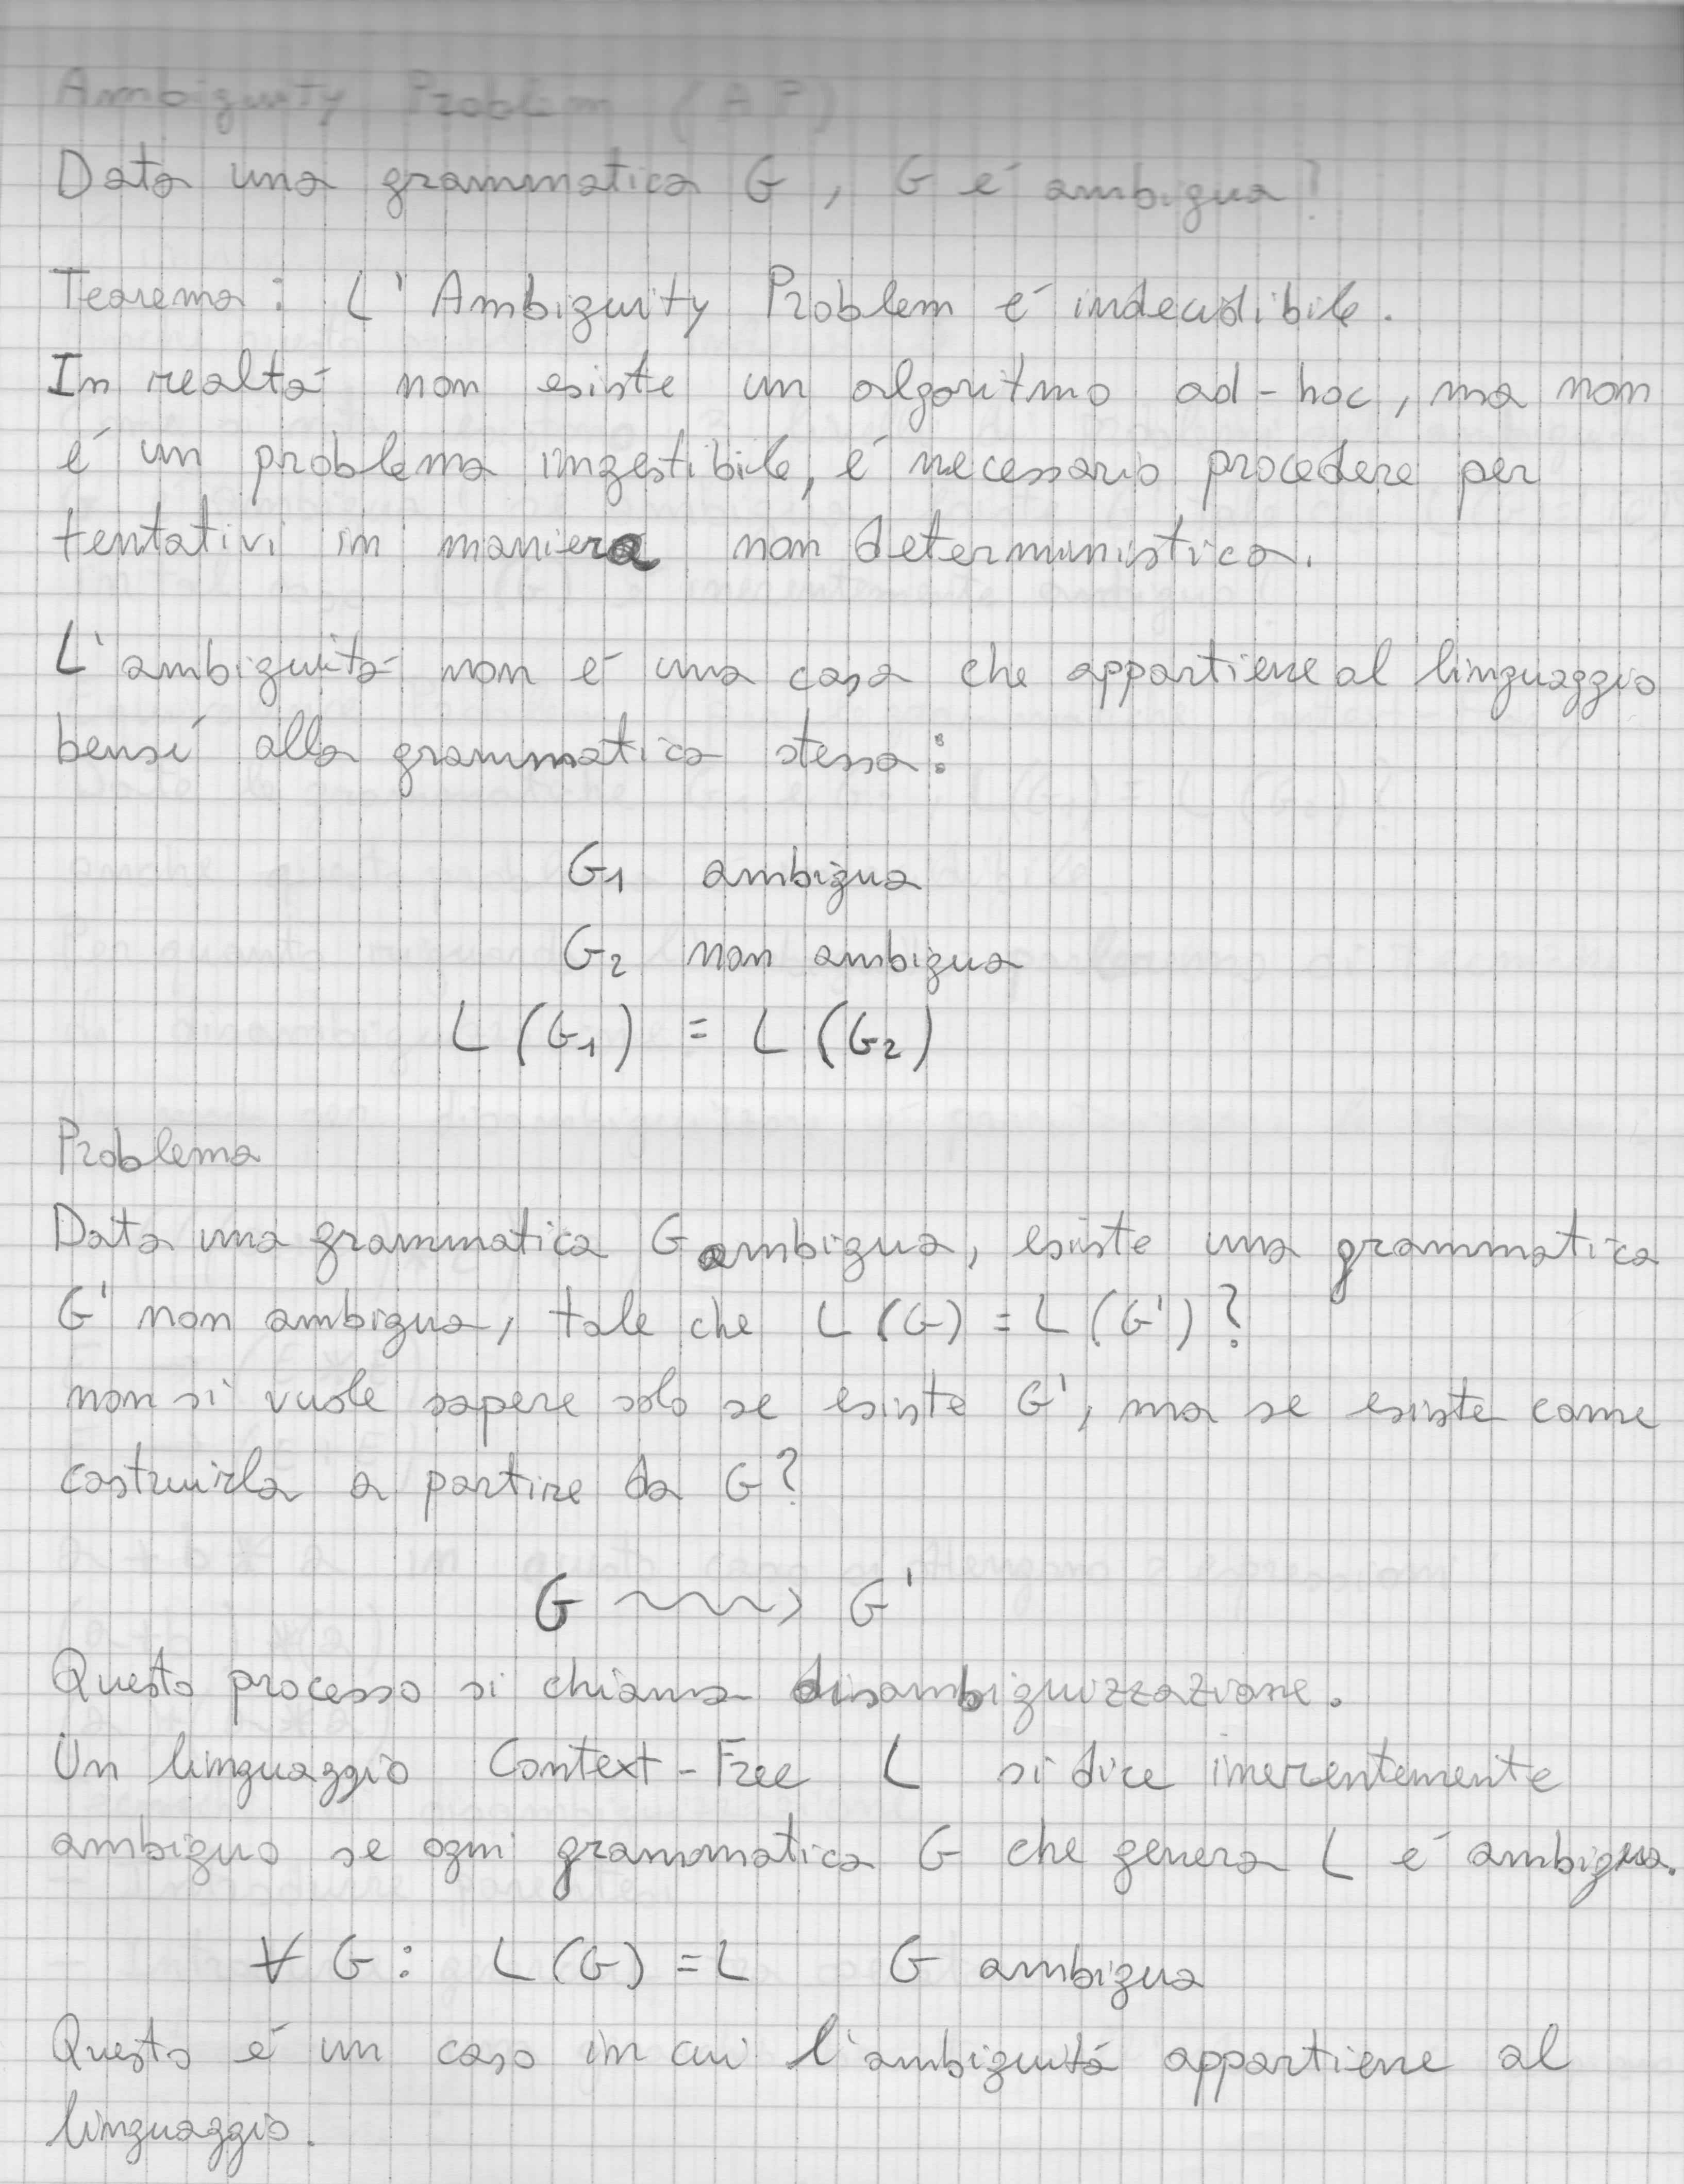 Ambiguity Problem (AP)
Data una grammatica G, G é ambigua?
Teorema: L'Ambiguity Problem é indecidibile.
In realtá non esiste un algoritmo ad-hoc, ma non
é un problema ingestibile, é necessario procedere per
tentativi in maniera non deterministica.
L'ambiguitá non é una cosa che appartiene al linguaggio
bensí alla grammatica stessa:
G1 ambigua
G2 non ambigua
L (G1) = L (G2)
Problema
Data una grammatica G ambigua, esiste una grammatica
G' non ambigua, tale che L (G) = L (G')?
non si vuole sapere solo se esiste G', ma se esiste come
costruirla a partire da G?
G ~~~> G'
Questo processo si chiama disambiguizzazione.
Un linguaggio Context-Free L si dice inerentemente
ambiguo se ogni grammatica G che genera L é ambigua.
∀ G: L (G) = L G ambigua
Questo é un caso in cui l'ambiguitá appartiene al
linguaggio.